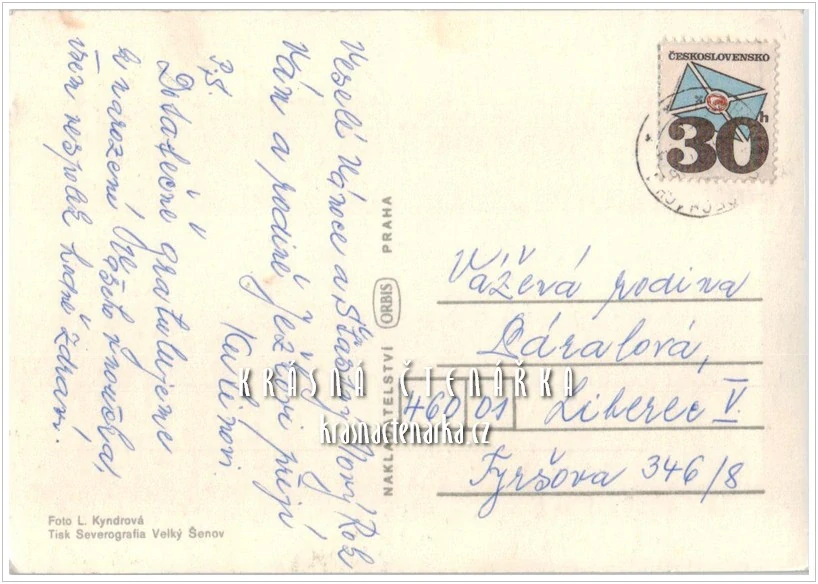 Veselé Vánoce a šťastný Nový Rok
Vám a rodině Ježkovi přejí
Karlínovi
P.S.
Dodatečně gratulujeme
k narození Vašeho vnoučka,
všem nespolek hodně zdraví.
ČESKOSLOVENSKO
30h
NAKLADATELSTVÍ ORBIS PRAHA
Vážená rodina
Dáralová,
460 01 Liberec V.
Tyršova 346/8
KRÁSNÁ ČTENÁŘKA
krasnactenarka.cz
Foto L. Kyndrová
Tisk Severografia Velký Šenov